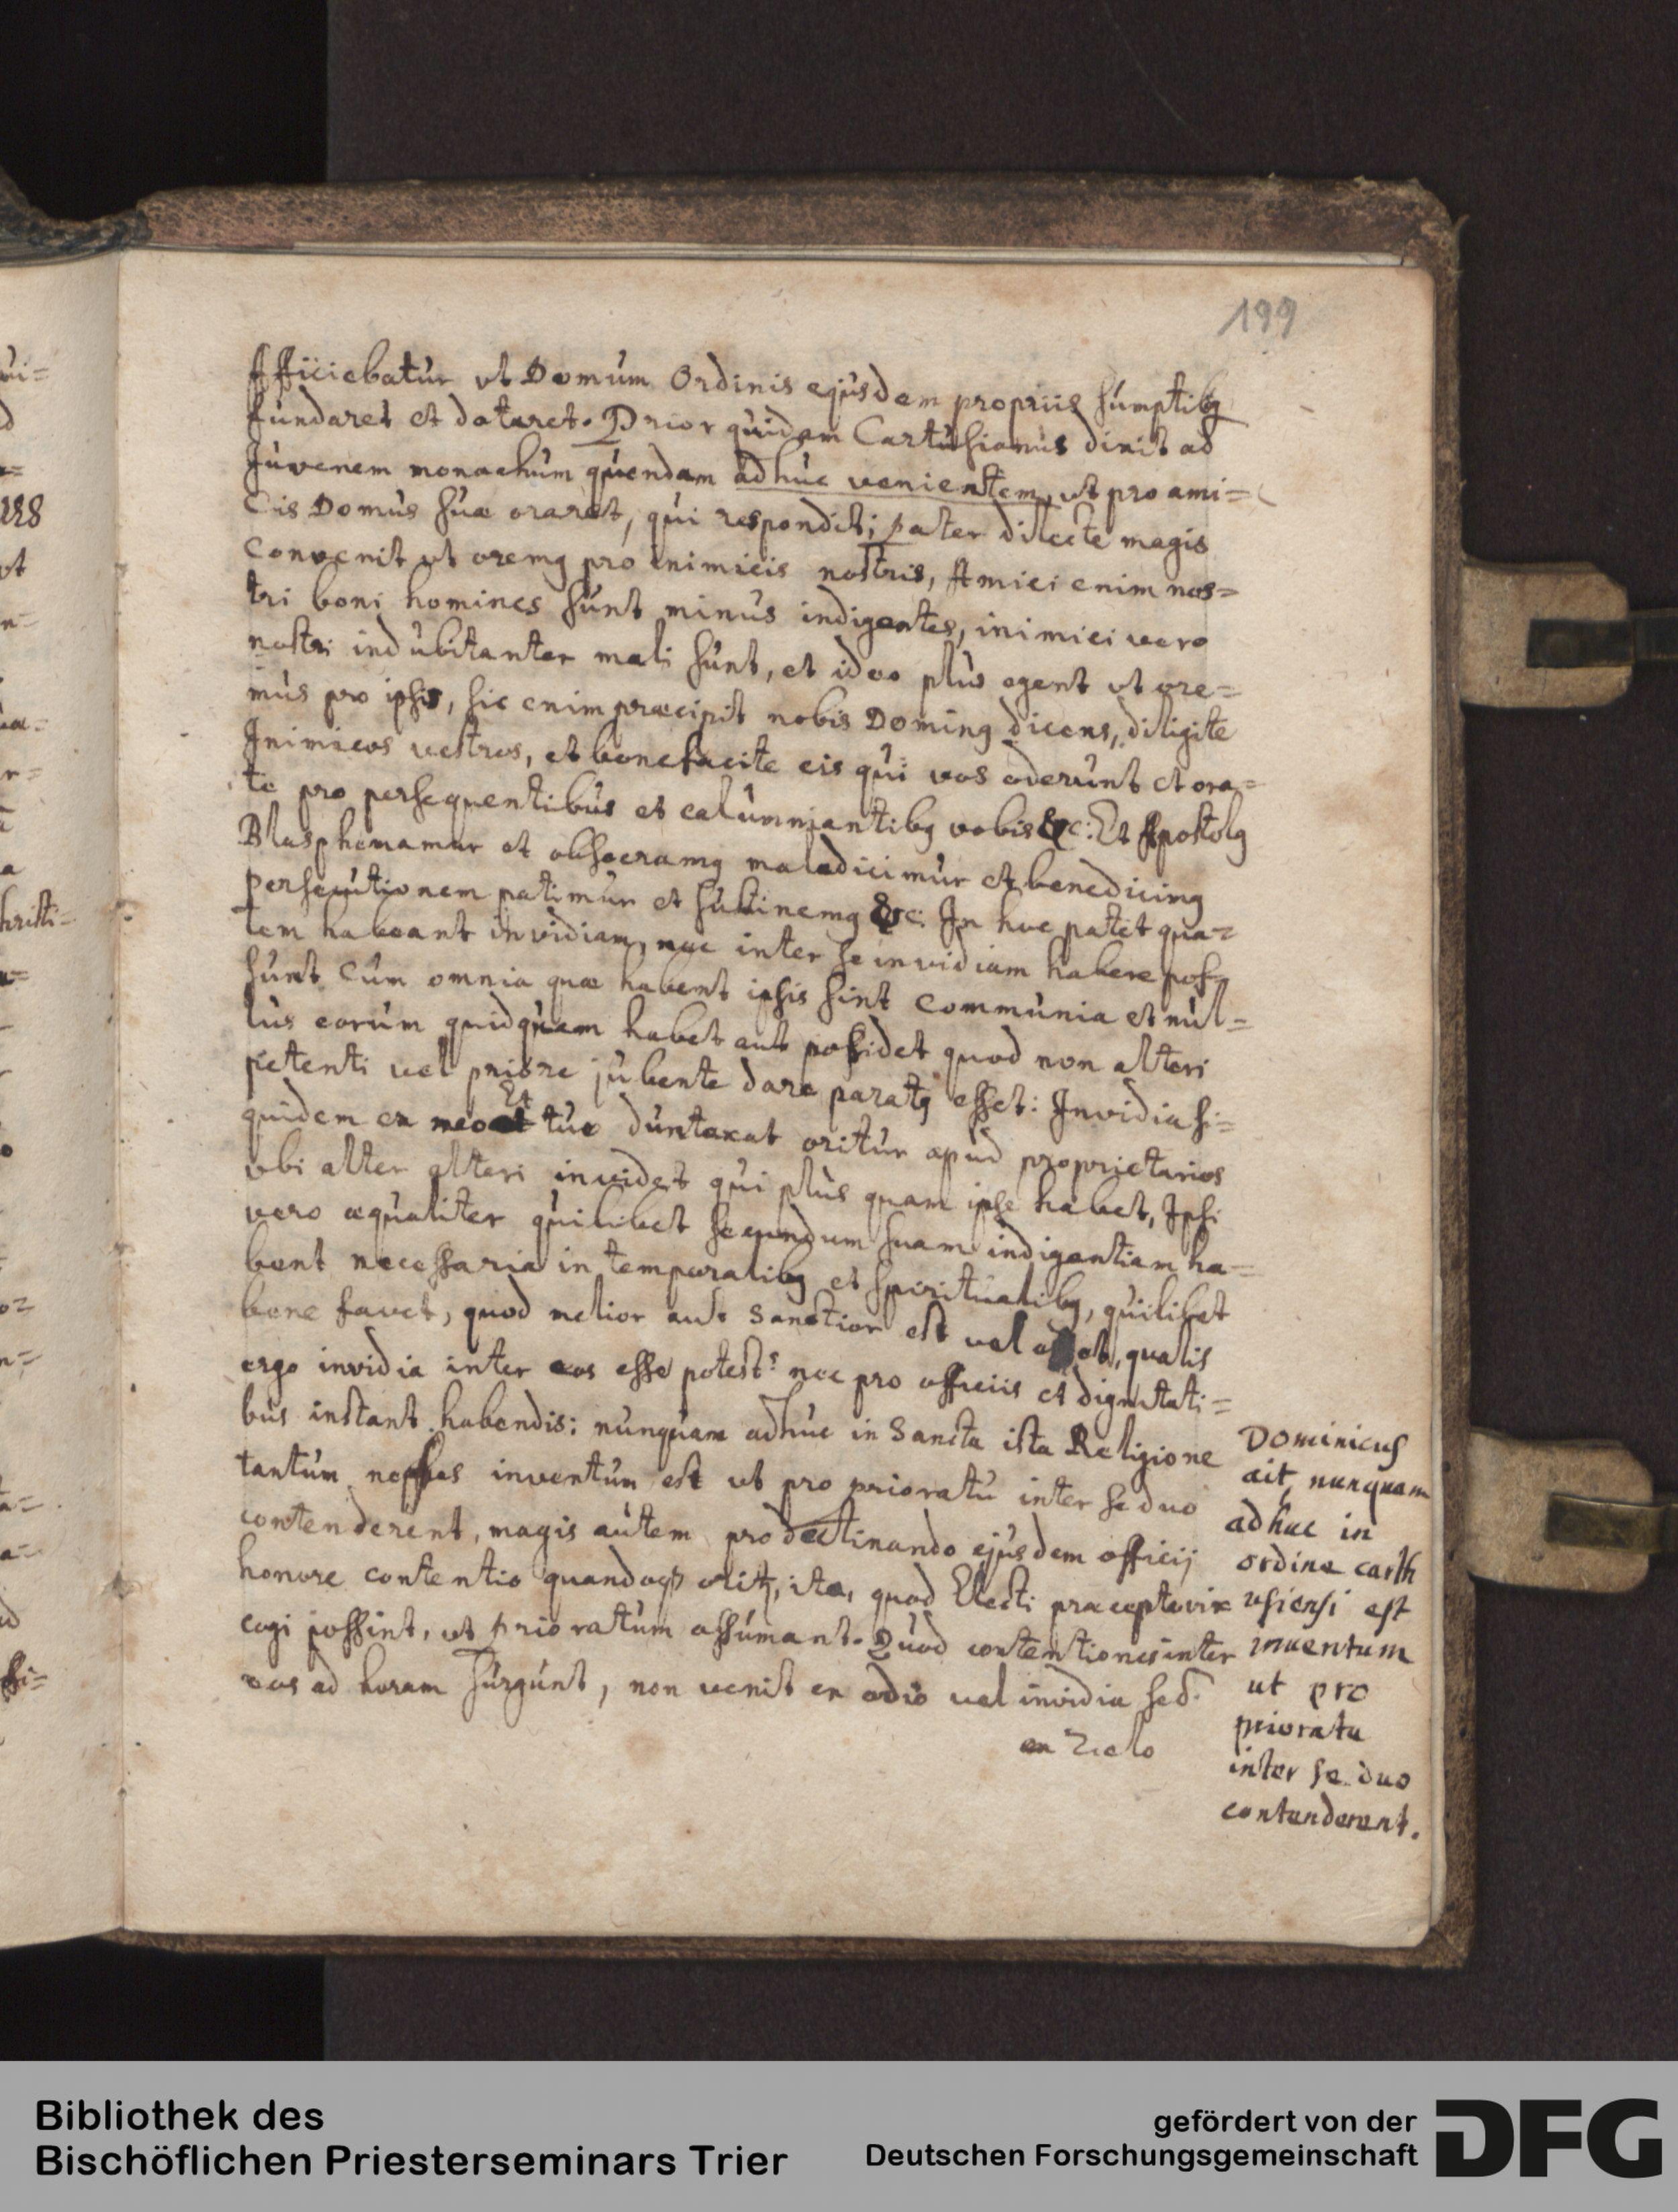 199
Afficiebatur vt Domum Ordinis ejusdem propriis sumptibq
fundaret et dotaret. Prior quidam Cartusianus dixit ad
Juvenem monachum quendam adhuc venientem, ut pro ami=
cis Domus suæ oraret, qui respondit; pater dilecte magis
convenit ut oremq pro inimicis nostris, Amici enim nos=
tri boni homines sunt minus indigentes, inimici vero
nostri indubitanter mali sunt, et ideo plus egent ut ore=
mus pro ipsis, sic enim præcipit nobis Dominq dicens, diligite
Inimicos vestros, et benefacite eis qui vos oderunt et ora=
te pro persequentibus et calumniantibq vobis &c: Et Apostolq
Blasphemamur et obsecramq maledicimur et benedicimq
persecutionem patimur et sustinemq &c: In hoc patet qua=
lem habeant invidiam, nec inter se invidiam habere pos=
sunt cum omnia quæ habent ipsis sint communia et nul=
lus eorum quidquam habet aut possidet quod non alteri
petenti vel priore jubente dare paratq esset: Invidia si=
quidem ex meo Et tuo duntaxat oritur apud proprietarios
vbi alter alteri invidet qui plus quam ipse habet, Ipsi
vero æqualiter quilibet secundum suam indigentiam ha=
bent necessaria in temporalibq et spiritualibq, quilibet
bene favet, quod melior aut sanctior est vel esset, qualis
ergo invidia inter eos esse potest? nec pro officiis et dignitati=
bus instant habendis: nunquam adhuc in Sancta ista Religione
tantum nephas inventum est ut pro prioratu inter se duo
contenderent, magis autem pro declinando ejusdem officij
honore contentio quandoqp oritq, ita, quod Electi præcepto vix
cogi possint, ut prioratum assumant. Quod contentiones inter
eos ad horam surgunt, non venit ex odio vel invidia sed
ex zelo
Dominicus
ait, nunquam
adhuc in
ordine carth
usiensi est
inventum
ut pro
prioratu
inter se duo
contenderent.
Bibliothek des
Bischöflichen Priesterseminars Trier
gefördert von der
Deutschen Forschungsgemeinschaft
DFG